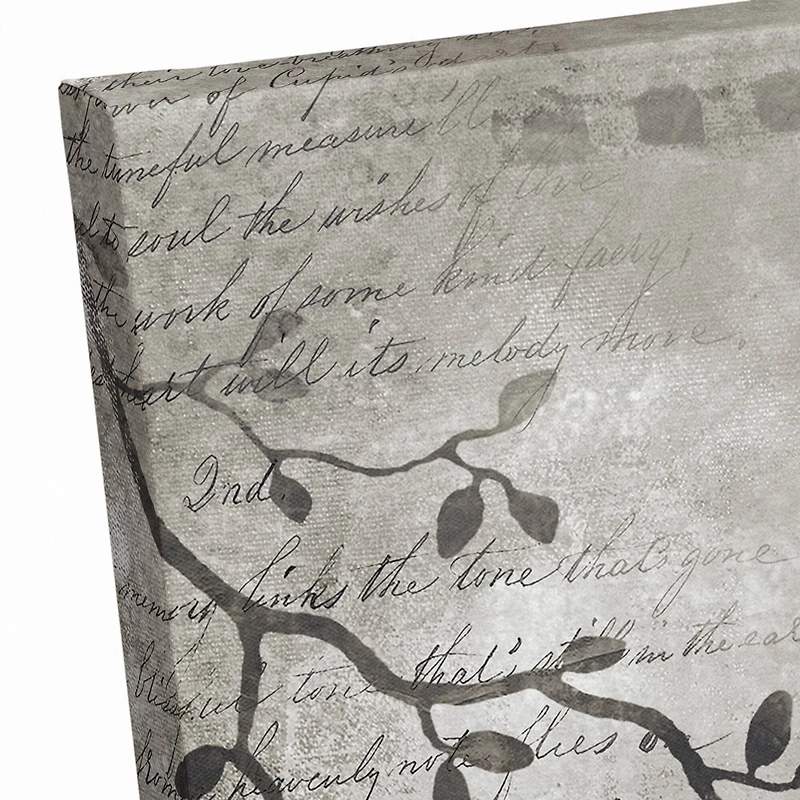 their love-breathing
power of Cupid's dart
the tuneful measure
to soul the wishes of love
the work of some kind faery;
heart will its melody move.
2nd.
memory links the tone that's gone
blissful tone that's still in the ear
from heavenly note flies on